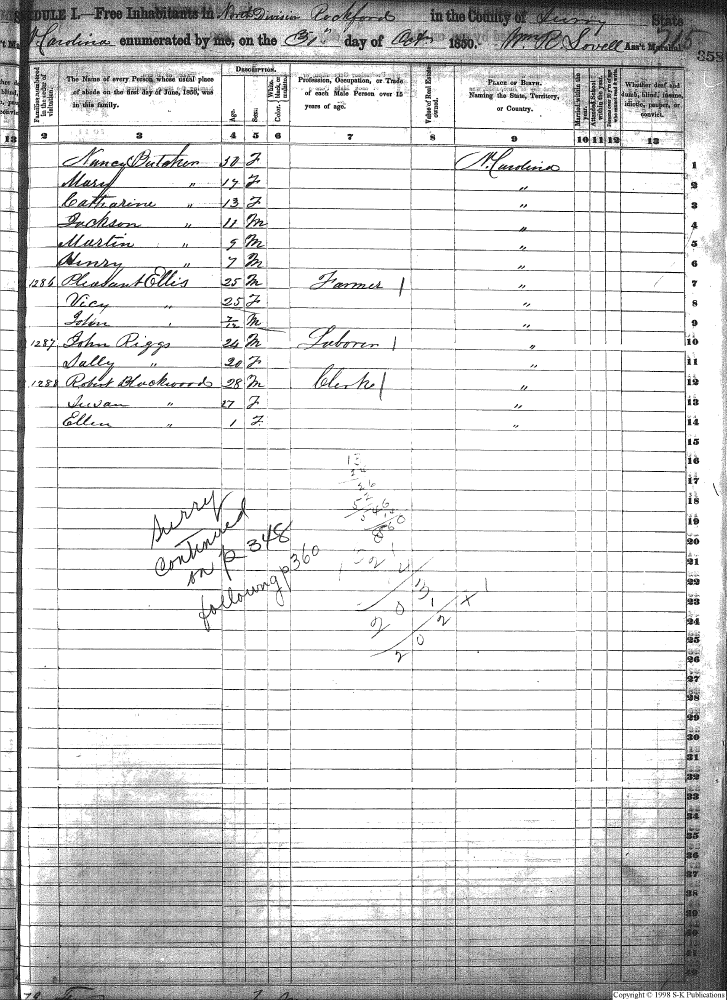 SCHEDULE I.—Free Inhabitants in North Division Rockford in the County of Surry State
N. Carolina enumerated by me, on the 31" day of Oct 1850. Wm R. Lovell Ass't Marshal. 715
358
Families numbered in the order of visitation.
The Name of every Person whose usual place of abode on the first day of June, 1850, was in this family.
DESCRIPTION.
Age.
Sex.
Color. White, black, or mulatto.
Profession, Occupation, or Trade of each Male Person over 15 years of age.
Value of Real Estate owned.
PLACE OF BIRTH. Naming the State, Territory, or Country.
Married within the year.
Attended School within the year.
Whether deaf and dumb, blind, insane, idiotic, pauper, or convict.
13 2 3 4 5 6 7 8 9 10 11 12 13
Nancy Butcher F N. Carolina 1
Mary " 17 F " 2
Catharine " 13 F " 3
Jackson " 11 M " 4
Martin " 9 M " 5
Henry " 7 M " 6
1286 Pleasant Ellis 25 M Farmer " 7
Vicy " 25 F " 8
John " 7/12 M " 9
1287 John Riggs 24 M Laborer " 10
Sally " 20 F " 11
1288 Robert Blackwood 28 M Clerk " 12
Susan " 27 F " 13
Ellen " 1 F " 14
15
16
17
18
19
Surry
20
continued
21
on p 348
22
following p 360
23
24
25
26
27
28
29
30
31
32
33
34
35
36
37
38
39
40
Copyright © 1998 S-K Publications